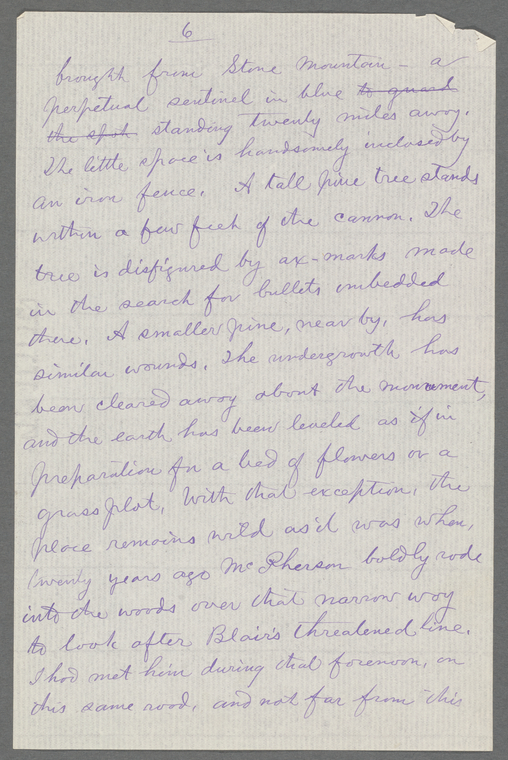 6
brought from Stone Mountain – a
perpetual sentinel in blue to guard
the spot standing twenty miles away.
The little space is handsomely inclosed by
an iron fence. A tall pine tree stands
within a few feet of the cannon. The
tree is disfigured by ax-marks made
in the search for bullets imbedded
there. A smaller pine, near by, has
similar wounds. The undergrowth has
been cleared away about the monument,
and the earth has been leveled as if in
preparation for a bed of flowers or a
grass plot. With that exception, the
place remains wild as it was when,
twenty years ago McPherson boldly rode
into the woods over that narrow way
to look after Blair's threatened line.
I had met him during that forenoon, on
this same road, and not far from this